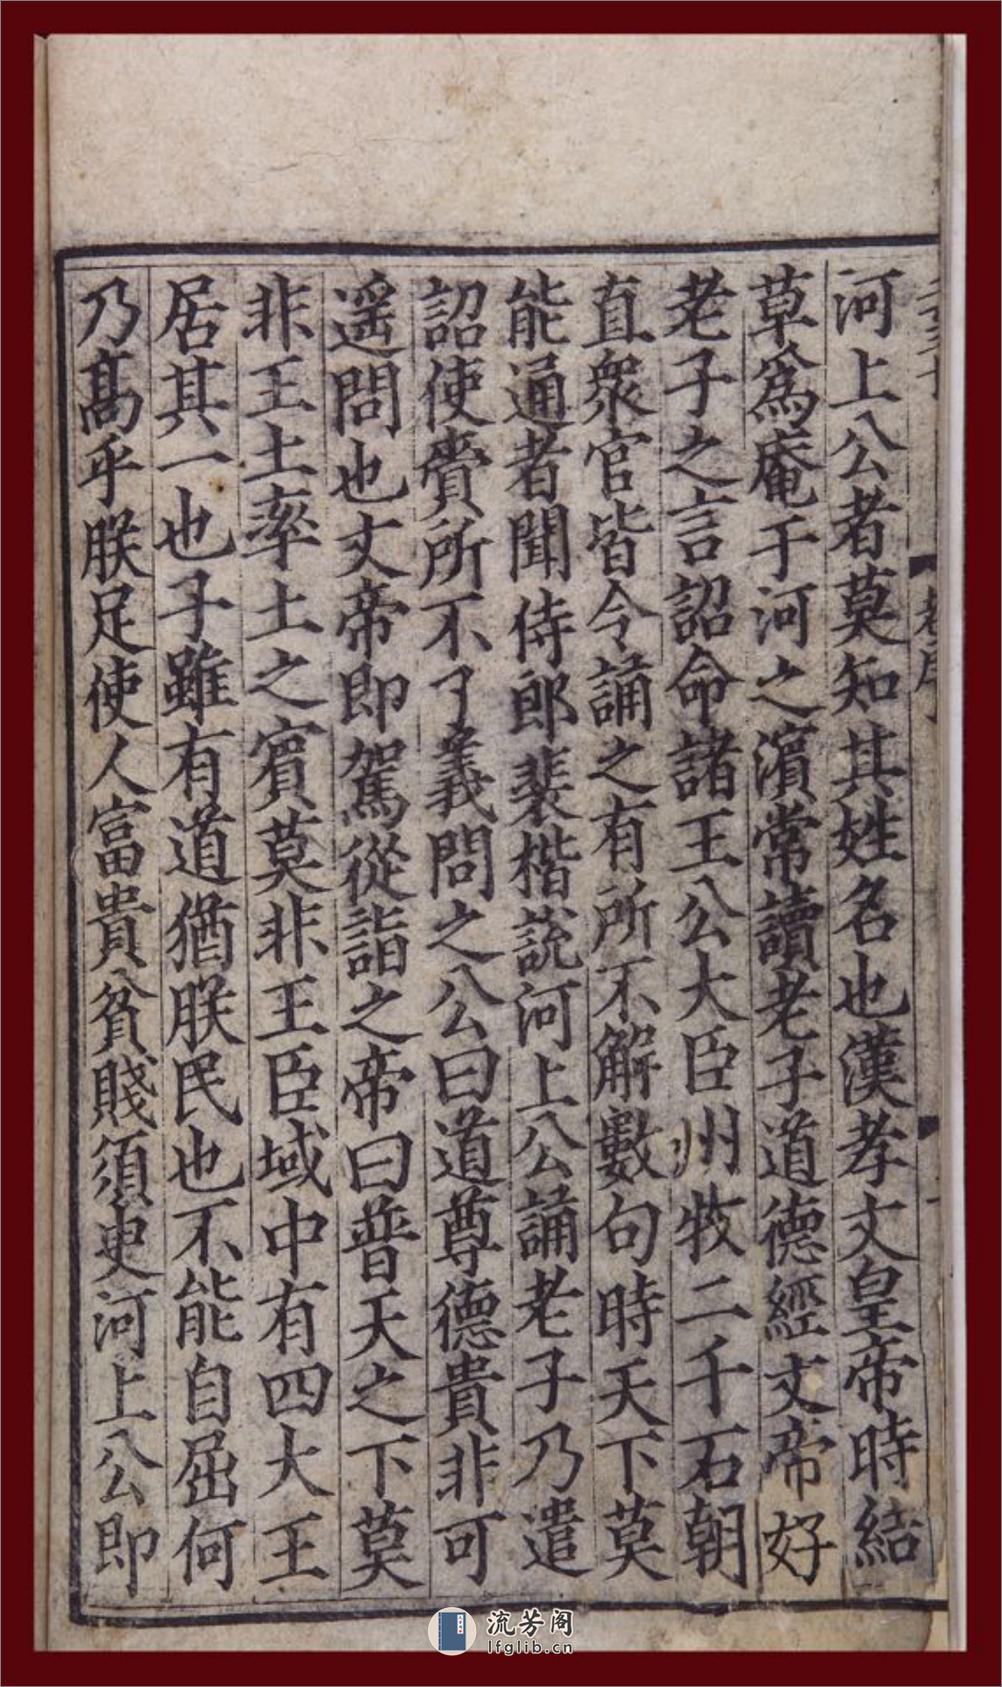 河上公者莫知其姓名也漢孝文皇帝時結
草爲庵于河之濱常讀老子道德經文帝好
老子之言詔命諸王公大臣州牧二千石朝
直衆官皆令誦之有所不解數句時天下莫
能通者聞侍郎裴楷說河上公誦老子乃遣
詔使賫所不了義問之公曰道尊德貴非可
遥問也文帝即駕從詣之帝曰普天之下莫
非王土率土之賓莫非王臣域中有四大王
居其一也子雖有道猶朕民也不能自屈何
乃髙乎朕足使人富貴貧賤須臾河上公即
流芳阁
lfglib.cn